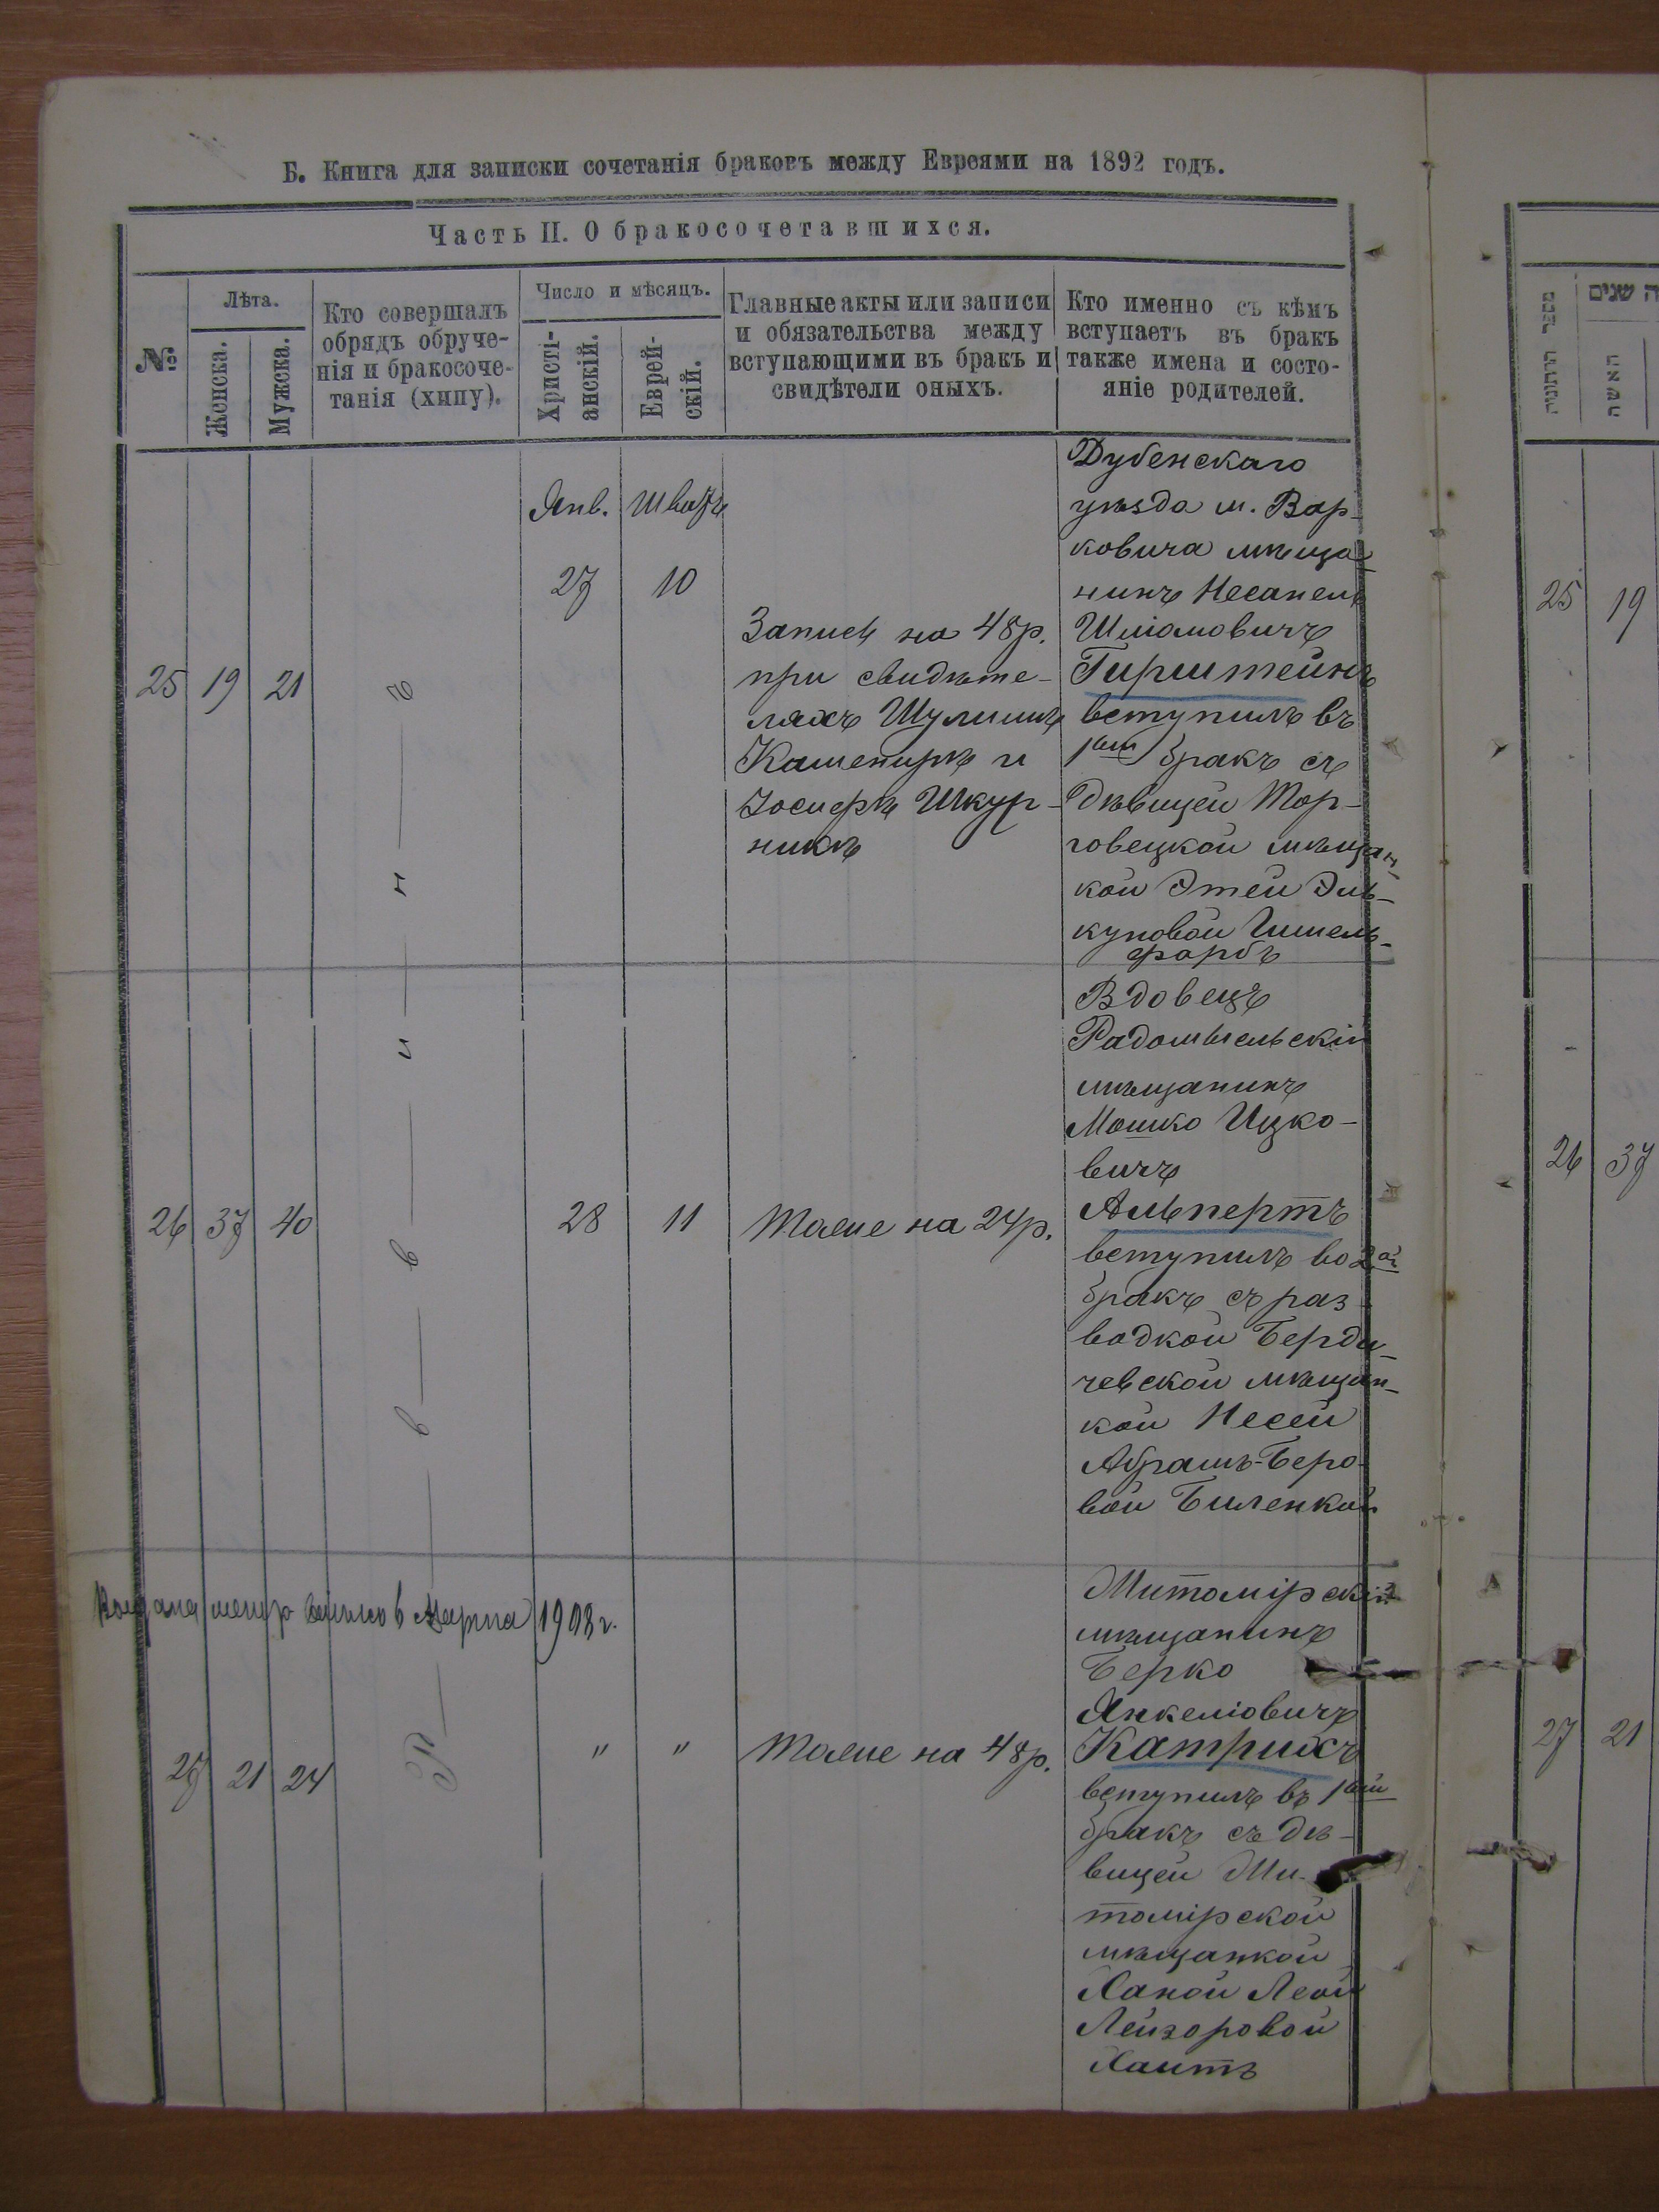 Б. Книга для записки сочетанія браковъ между Евреями на 1892 годъ.
Часть II. О бракосочетавшихся.
№
Лѣта.
Женска.
Мужска.
Кто совершалъ
обрядъ обруче-
нія и бракосоче-
танія (хипу).
Число и мѣсяцъ.
Христі-
анскій.
Еврей-
скій.
Главные акты или записи
и обязательства между
вступающими въ бракъ и
свидѣтели оныхъ.
Кто именно съ кѣмъ
вступаетъ въ бракъ
также имена и состо-
яніе родителей.
25 19 21
Янв. Шватъ
27 10
Запись на 48 р.
при свидѣте-
ляхъ Шулимѣ
Кашепирѣ и
Іосифѣ Шкур-
никѣ
Дубенскаго
уѣзда м. Вар-
ковича мѣща-
нинъ Несанель
Шліомовичъ
Гирштейнъ
вступилъ въ
1ый бракъ съ
дѣвицей Тор-
говецкой мѣщан-
кой Этей Эль-
куновой Гимель-
фарбъ
26 37 40
28 11
Тоже на 24 р.
Вдовецъ
Радомысльскій
мѣщанинъ
Мошко Ицко-
вичъ
Альпертъ
вступилъ во 2ой
бракъ съ раз-
водкой Берди-
чевской мѣщан-
кой Несей
Абрамъ-Беро-
вой Биленкой
Марта 1908 г.
27 21 24
" "
Тоже на 48 р.
Житомірскій
мѣщанинъ
Берко
Янкеліовичъ
Катрихъ
вступилъ въ 1ый
бракъ съ дѣ-
вицей Жи-
томірской
мѣщанкой
Ханой Леей
Лейзоровой
Хаитъ
Р — в — в — и — н — ъ
מספר החתונה
ה שנים
האשה
25 19
26 37
27 21